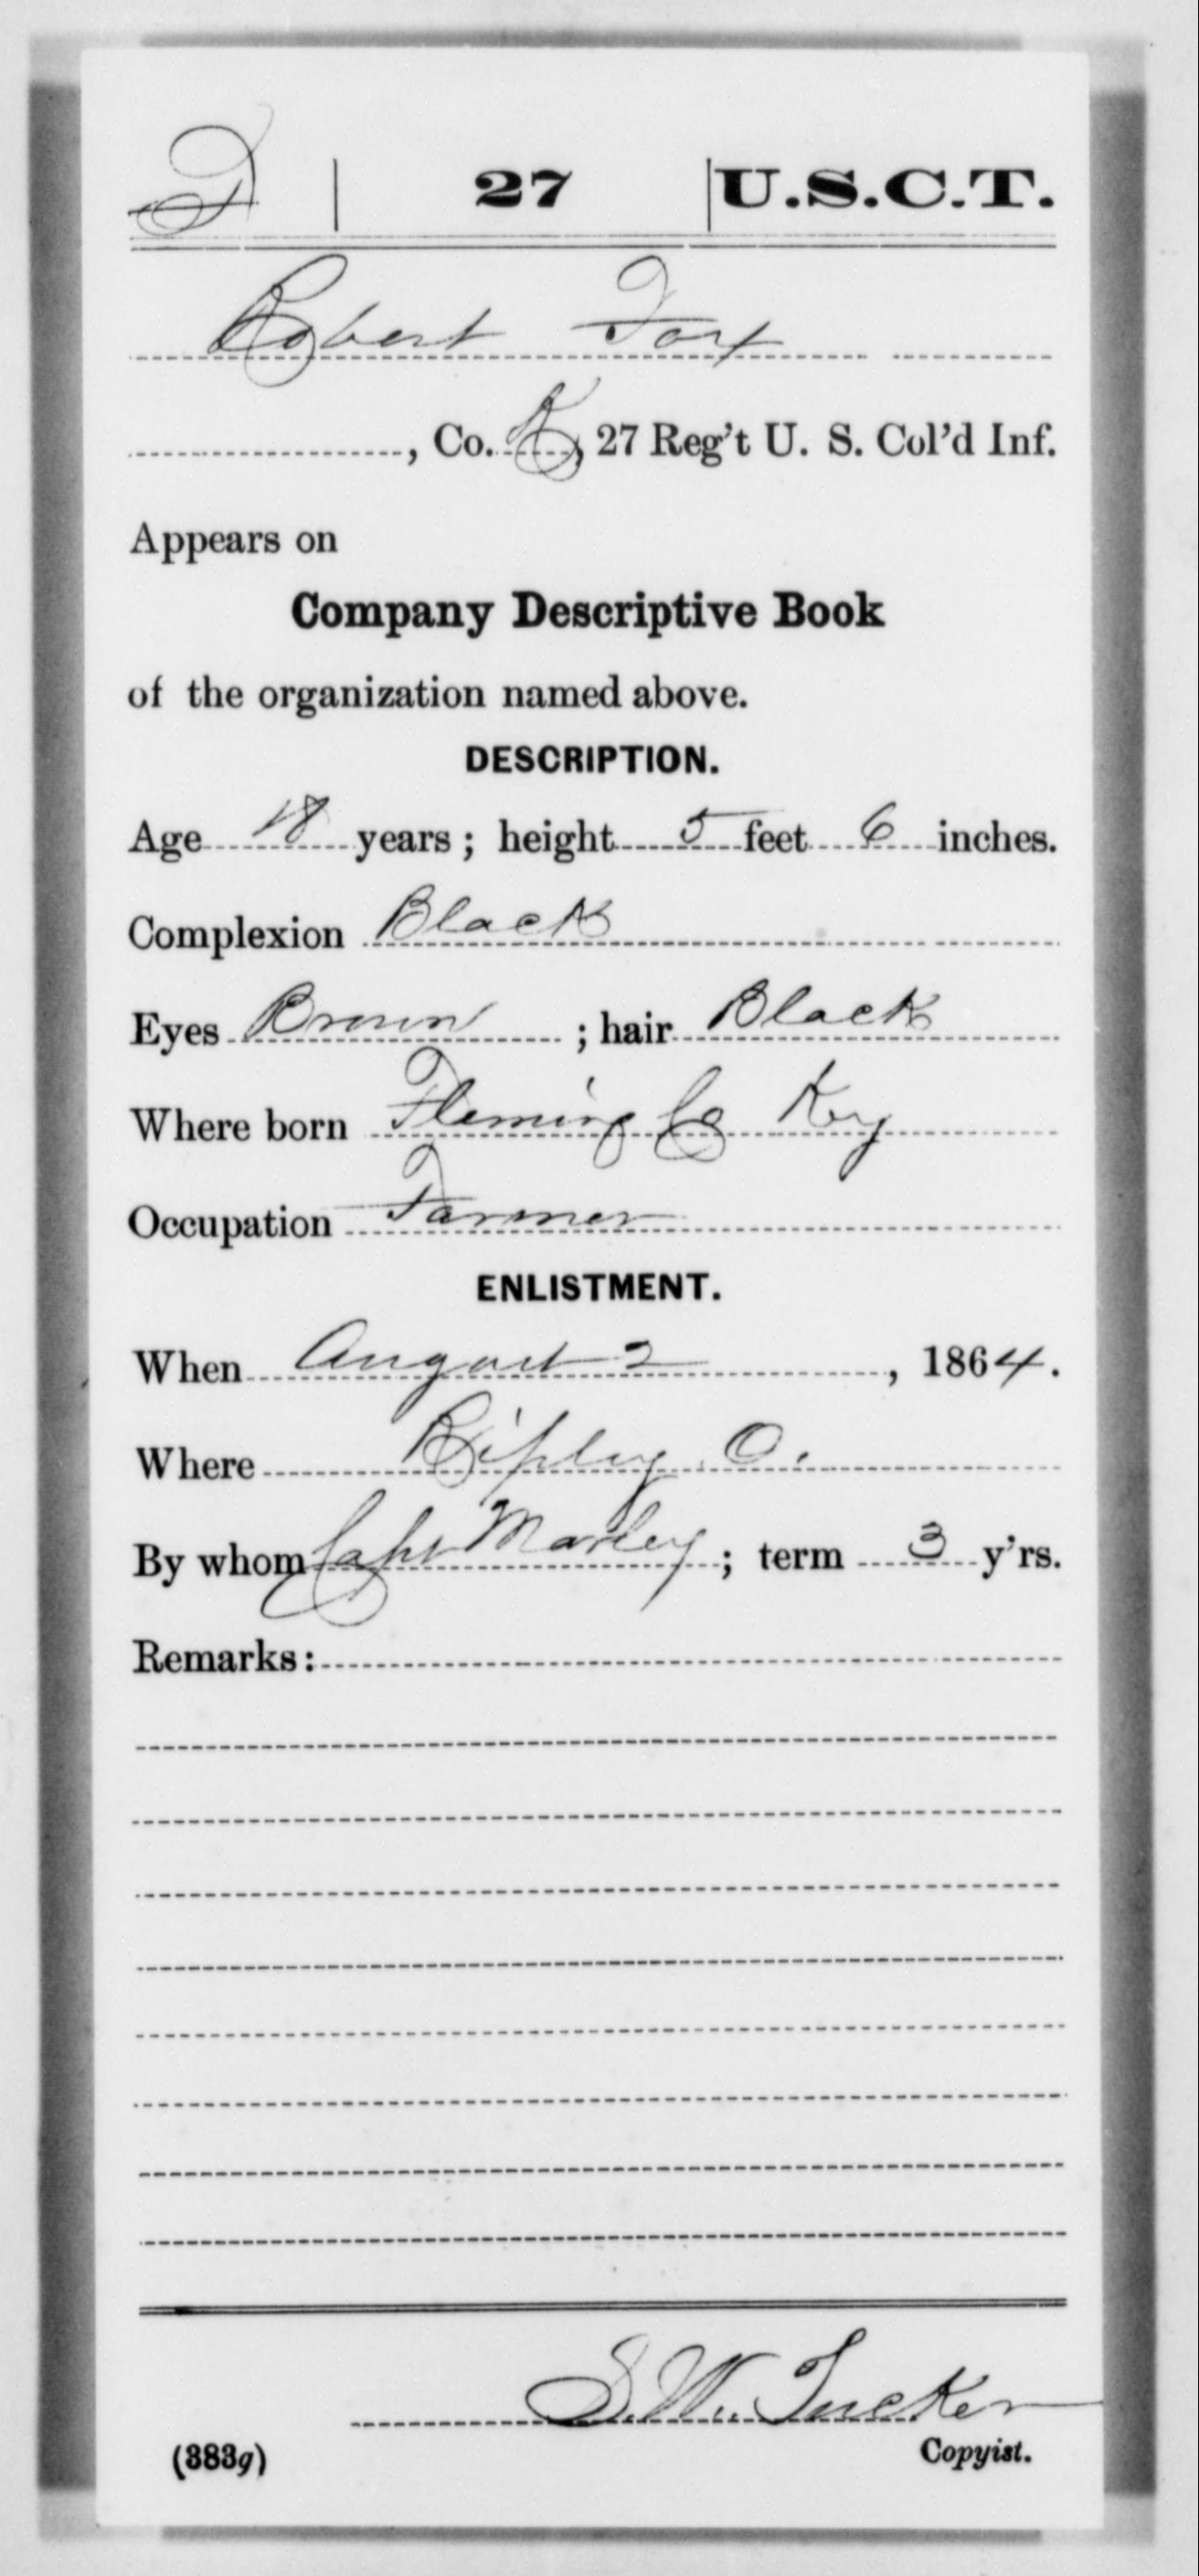 F | 27 | U.S.C.T.
Robert Fox
, Co. K, 27 Reg't U. S. Col'd Inf.
Appears on
Company Descriptive Book
of the organization named above.
DESCRIPTION.
Age 18 years; height 5 feet 6 inches.
Complexion Black
Eyes Brown ; hair Black
Where born Fleming Co Key
Occupation Farmer
ENLISTMENT.
When August 2, 1864.
Where Ripley O.
By whom Capt Marley; term 3 y'rs.
Remarks:
S. W. Tucker
(383g) Copyist.